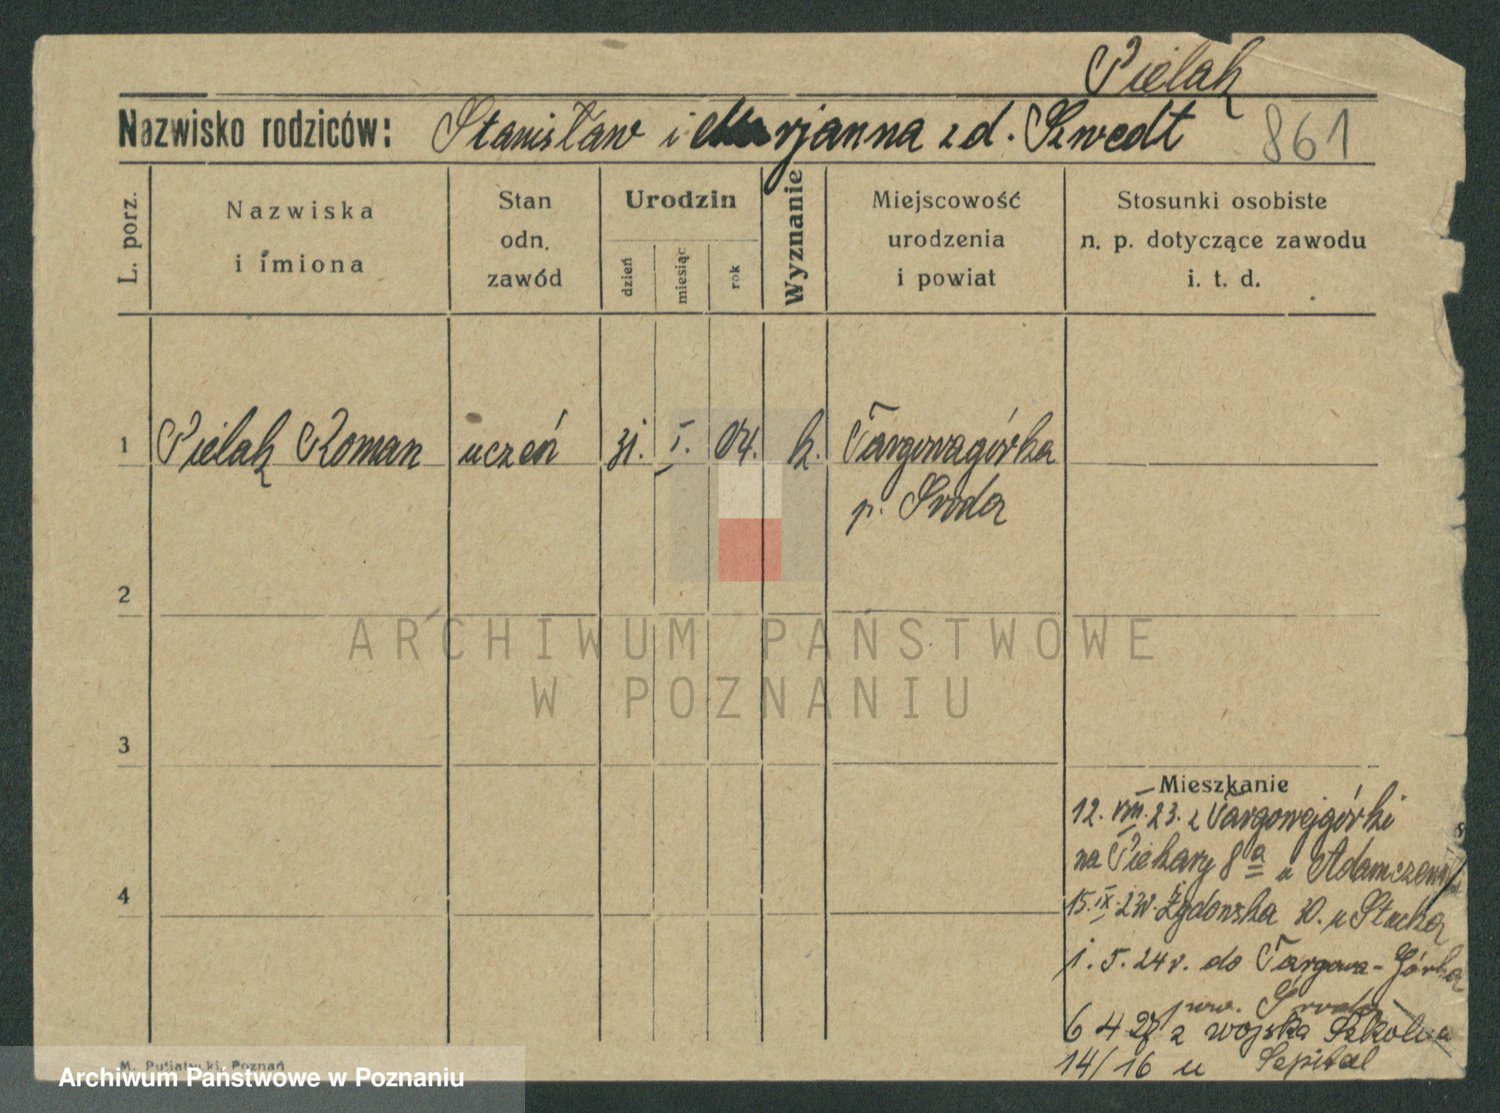 Pielak
Nazwisko rodziców: Stanisław i Marjanna z d. Szwedt 861
L. porz.
Nazwiska
i imiona
Stan
odn.
zawód
Urodzin
dzień
miesiąc
rok
Wyznanie
Miejscowość
urodzenia
i powiat
Stosunki osobiste
n. p. dotyczące zawodu
i. t. d.
1 Pielak Roman uczeń 31. I. 04. k. Targowagórka
p. Środa
2
ARCHIWUM PAŃSTWOWE
W POZNANIU
3
Mieszkanie
12. VIII. 23. z Targowejgórki
na Piekary 8a u
4
15. IX. 23r. Żydowska 30. u
1. 5. 24r. do Targowa-Górka
pow. Środa
6 4 27 z wojska Szkolna
14/16 u Szpital
M. Putiatycki, Poznań
Archiwum Państwowe w Poznaniu